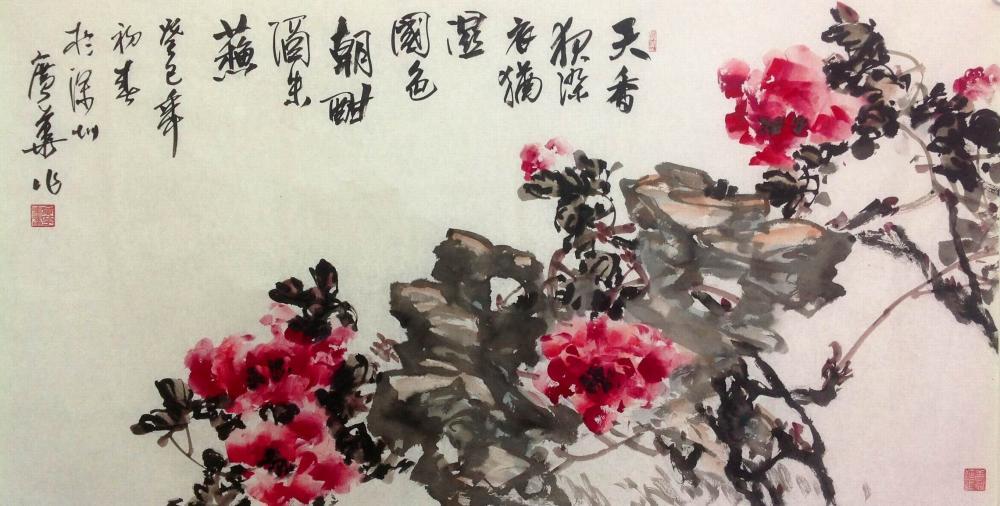 天香
夜染
衣猶
濕
國色
朝酣
酒未
蘇
癸巳年
初春
於深圳
廣華作